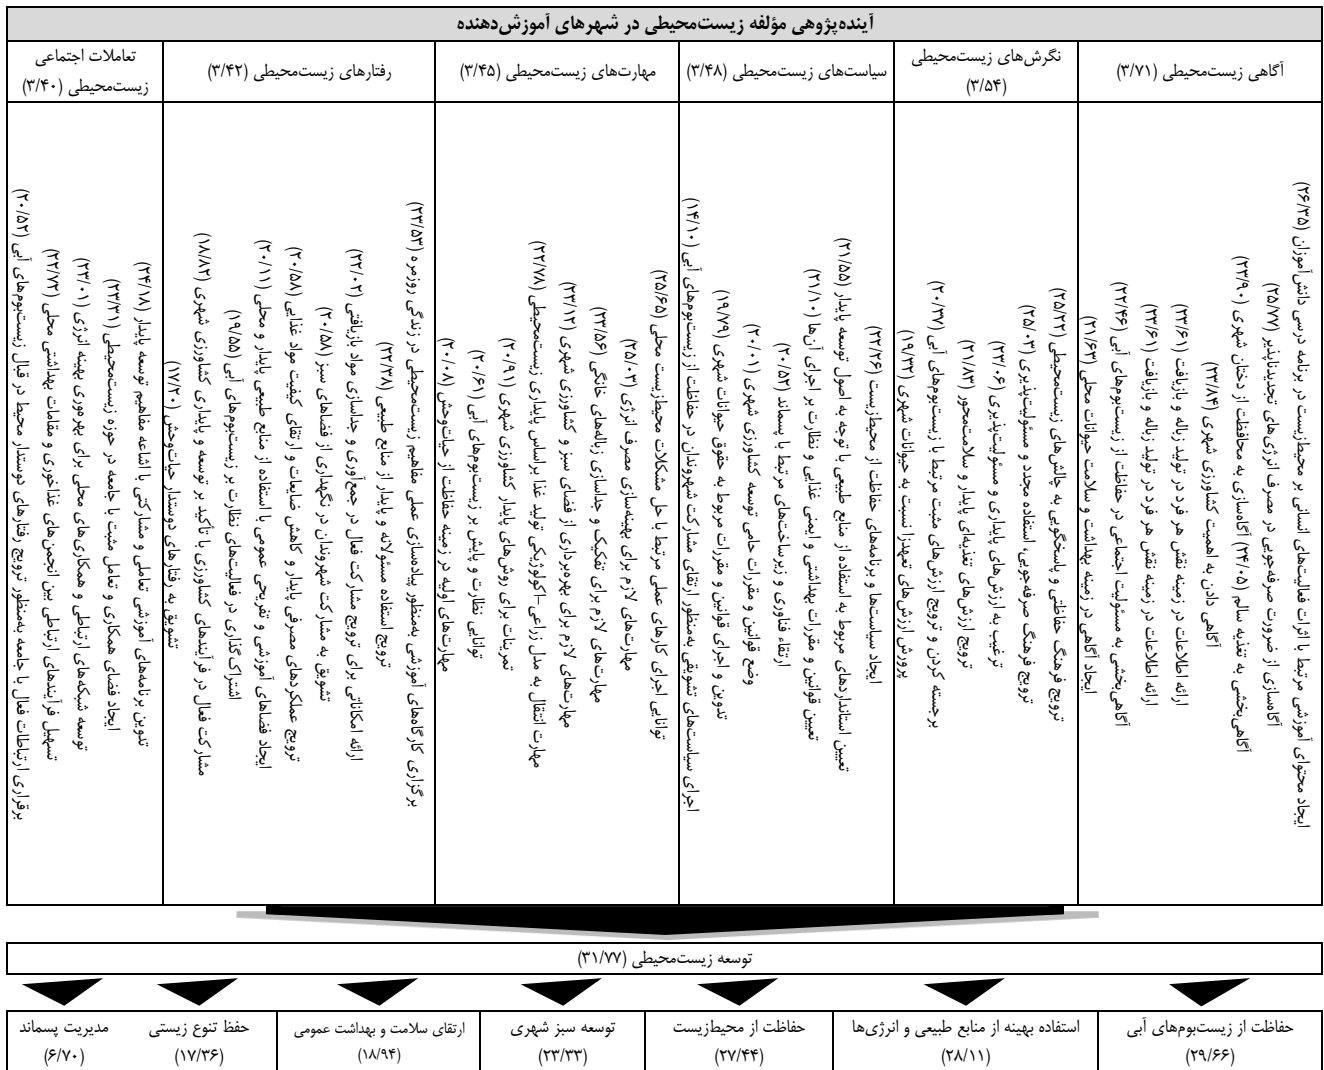 آینده‌پژوهی مؤلفه زیست‌محیطی در شهرهای آموزش‌دهنده
آگاهی زیست‌محیطی (۳/۷۱)
نگرش‌های زیست‌محیطی
(۳/۵۴)
سیاست‌های زیست‌محیطی (۳/۴۸)
مهارت‌های زیست‌محیطی (۳/۴۵)
رفتارهای زیست‌محیطی (۳/۴۲)
تعاملات اجتماعی
زیست‌محیطی (۳/۴۰)
ایجاد محتوای آموزشی مرتبط با اثرات فعالیت‌های انسانی بر محیط‌زیست در برنامه درسی دانش‌آموزان (۲۶/۳۵)
آگاه‌سازی از ضرورت صرفه‌جویی در مصرف انرژی‌های تجدیدناپذیر (۲۵/۷۷)
آگاهی‌بخشی به تغذیه سالم (۲۴/۰۵) آگاه‌سازی به محافظت از دختان شهری (۲۳/۹۰)
آگاهی دادن به اهمیت کشاورزی شهری (۲۳/۸۴)
ارائه اطلاعات در زمینه نقش هر فرد در تولید زباله و بازیافت (۲۳/۶۱)
ارائه اطلاعات در زمینه نقش هر فرد در تولید زباله و بازیافت (۲۳/۶۱)
آگاهی‌بخشی به مسئولیت اجتماعی در حفاظت از زیست‌بوم‌های آبی (۲۲/۴۶)
ایجاد آگاهی در زمینه بهداشت و سلامت حیوانات محلی (۲۱/۶۳)
ترویج فرهنگ حفاظتی و پاسخگویی به چالش‌های زیست‌محیطی (۲۵/۲۲)
ترویج فرهنگ صرفه‌جویی، استفاده مجدد و مسئولیت‌پذیری (۲۵/۰۲)
ترغیب به ارزش‌های پایداری و مسئولیت‌پذیری (۲۳/۰۶)
ترویج ارزش‌های تغذیه‌ای پایدار و سلامت‌محور (۲۱/۸۳)
برجسته کردن و ترویج ارزش‌های مثبت مرتبط با زیست‌بوم‌های آبی (۲۰/۳۷)
پرورش ارزش‌های تعهدزا نسبت به حیوانات شهری (۱۹/۳۲)
ایجاد سیاست‌ها و برنامه‌های حفاظت از محیط‌زیست (۲۲/۲۶)
تعیین استانداردهای مربوط به استفاده از منابع طبیعی با توجه به اصول توسعه پایدار (۲۱/۵۵)
تعیین قوانین و مقررات بهداشتی و ایمنی غذایی و نظارت بر اجرای آن‌ها (۲۱/۱۰)
ارتقاء فناوری و زیرساخت‌های مرتبط با پسماند (۲۰/۵۲)
وضع قوانین و مقررات حامی توسعه کشاورزی شهری (۲۰/۰۱)
تدوین و اجرای قوانین و مقررات مربوط به حقوق حیوانات شهری (۱۹/۷۹)
اجرای سیاست‌های تشویقی به‌منظور ارتقای مشارکت شهروندان در حفاظت از زیست‌بوم‌های آبی (۱۴/۱۰)
توانایی اجرای کارهای عملی مرتبط با حل مشکلات محیط‌زیست محلی (۲۵/۶۵)
مهارت‌های لازم برای بهینه‌سازی مصرف انرژی (۲۵/۰۳)
مهارت‌های لازم برای تفکیک و جداسازی زباله‌های خانگی (۲۳/۵۶)
مهارت‌های لازم برای بهره‌برداری از فضای سبز و کشاورزی شهری (۲۳/۱۲)
مهارت انتقال به مدل زراعی –اکولوژیکی تولید غذا براساس پایداری زیست‌محیطی (۲۲/۷۸)
تمرینات برای روش‌های پایدار کشاورزی شهری (۲۰/۹۱)
توانایی نظارت و پایش بر زیست‌بوم‌های آبی (۲۰/۶۱)
مهارت‌های اولیه در زمینه حفاظت از حیات‌وحش (۲۰/۰۸)
برگزاری کارگاه‌های آموزشی به‌منظور پیاده‌سازی عملی مفاهیم زیست‌محیطی در زندگی روزمره (۲۳/۵۳)
ترویج استفاده مسئولانه و پایدار از منابع طبیعی (۲۲/۳۸)
ارائه امکاناتی برای ترویج مشارکت فعال در جمع‌آوری و جداسازی مواد بازیافتی (۲۲/۰۲)
تشویق به مشارکت شهروندان در نگهداری از فضاهای سبز (۲۰/۵۸)
ترویج عملکردهای مصرفی پایدار و کاهش ضایعات و ارتقای کیفیت مواد غذایی (۲۰/۵۸)
ایجاد فضاهای آموزشی و تفریحی عمومی با استفاده از منابع طبیعی پایدار و محلی (۲۰/۱۱)
اشتراک‌گذاری در فعالیت‌های نظارت بر زیست‌بوم‌های آبی (۱۹/۵۵)
مشارکت فعال در فرآیندهای کشاورزی با تأکید بر توسعه و پایداری کشاورزی شهری (۱۸/۸۲)
تشویق به رفتارهای دوستدار حیات‌وحش (۱۷/۲۰)
تدوین برنامه‌های آموزشی تعاملی و مشارکتی با اشاعه مفاهیم توسعه پایدار (۲۴/۱۸)
ایجاد فضای همکاری و تعامل مثبت با جامعه در حوزه زیست‌محیطی (۲۳/۳۱)
توسعه شبکه‌های ارتباطی و همکاری‌های محلی برای بهره‌وری بهینه انرژی (۲۳/۰۱)
تسهیل فرآیندهای ارتباطی بین انجمن‌های غذاخوری و مقامات بهداشتی محلی (۲۲/۷۲)
برقراری ارتباطات فعال با جامعه به‌منظور ترویج رفتارهای دوستدار محیط در قبال زیست‌بوم‌های آبی (۲۰/۵۲)
توسعه زیست‌محیطی (۳۱/۷۷)
حفاظت از زیست‌بوم‌های آبی
(۲۹/۶۶)
استفاده بهینه از منابع طبیعی و انرژی‌ها
(۲۸/۱۱)
حفاظت از محیط‌زیست
(۲۷/۴۴)
توسعه سبز شهری
(۲۳/۳۳)
ارتقای سلامت و بهداشت عمومی
(۱۸/۹۴)
حفظ تنوع زیستی
(۱۷/۳۶)
مدیریت پسماند
(۶/۷۰)